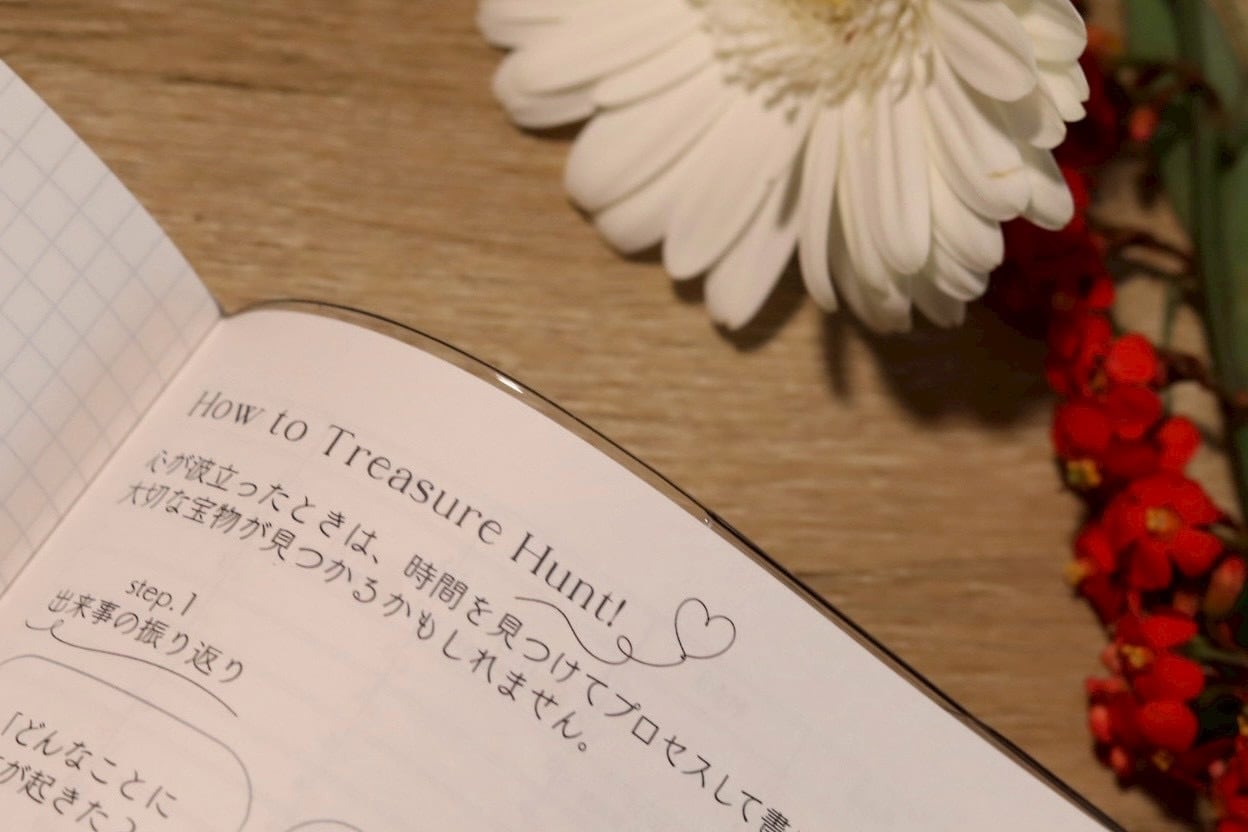 How to Treasure Hunt!
心が波立ったときは、時間を見つけてプロセスして書
大切な宝物が見つかるかもしれません。
step.1
出来事の振り返り
「どんなことに
が起きた？